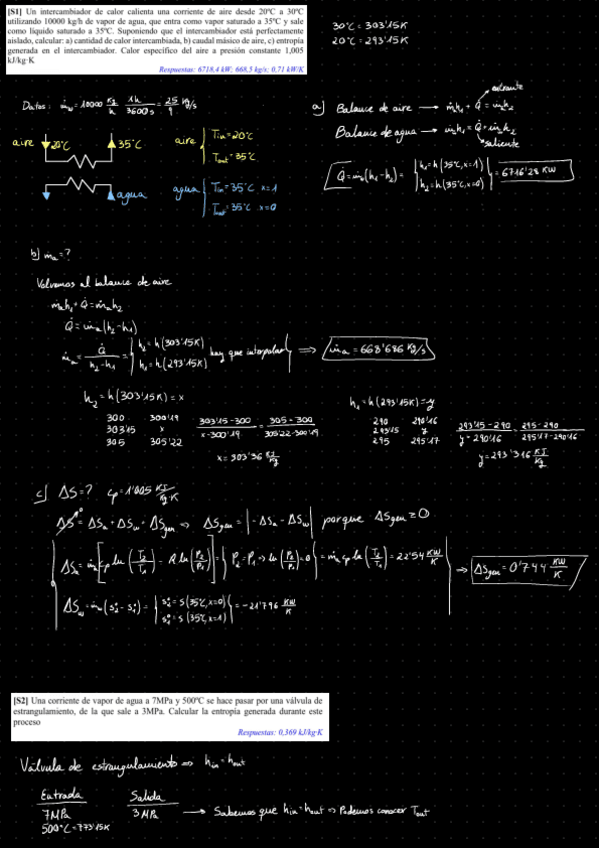 [S1] Un intercambiador de calor calienta una corriente de aire desde 20ºC a 30ºC
utilizando 10000 kg/h de vapor de agua, que entra como vapor saturado a 35ºC y sale
como líquido saturado a 35ºC. Suponiendo que el intercambiador está perfectamente
aislado, calcular: a) cantidad de calor intercambiada, b) caudal másico de aire, c) entropía
generada en el intercambiador. Calor específico del aire a presión constante 1,005
kJ/kg·K
Respuestas: 6718,4 kW; 668,5 kg/s; 0,71 kW/K
30ºC = 303'15K
20ºC = 293'15K
Datos: ṁw = 10000 Kg/h · 1h/3600s = 25/9 Kg/s
aire 20ºC 35ºC
agua
aire { Tin = 20ºC
Tout = 35ºC
agua { Tin = 35ºC x=1
Tout = 35ºC x=0
a) Balance de aire → ṁh1 + Q̇ = ṁh2
entrante
Balance de agua → ṁh1 = Q̇ + ṁh2
saliente
Q̇ = ṁ(h1 - h2) = { h1 = h(35ºC, x=1)
h2 = h(35ºC, x=0) } = 6716'28 KW
b) ṁa = ?
Volvemos al balance de aire
ṁah1 + Q̇ = ṁah2
Q̇ = ṁa(h2 - h1)
ṁa = Q̇/(h2 - h1) = { h2 = h(303'15K)
h1 = h(293'15K) } hay que interpolar ⇒ ṁa = 668'686 Kg/s
h2 = h(303'15K) = x
300 300'19
303'15 x
305 305'22
(303'15 - 300)/(x - 300'19) = (305 - 300)/(305'22 - 300'19)
x = 303'36 KJ/Kg
h1 = h(293'15K) = y
290 290'16
293'15 y
295 295'17
(293'15 - 290)/(y - 290'16) = (295 - 290)/(295'17 - 290'16)
y = 293'316 KJ/Kg
c) ΔS = ? cp = 1'005 KJ/Kg·K
ΔS = 0 = ΔSa + ΔSw + ΔSgen ⇒ ΔSgen = |-ΔSa - ΔSw| porque ΔSgen ≥ 0
ΔSa = ṁa[cp ln(T2/T1) - R ln(P2/P1)] = { P2 = P1 → ln(P2/P1) = 0 } = ṁa cp ln(T2/T1) = 22'54 KW/K
ΔSw = ṁw(s2º - s1º) = { s2º = s(35ºC, x=0)
s1º = s(35ºC, x=1) } = -21'796 KW/K
→ ΔSgen = 0'744 KW/K
[S2] Una corriente de vapor de agua a 7MPa y 500ºC se hace pasar por una válvula de
estrangulamiento, de la que sale a 3MPa. Calcular la entropía generada durante este
proceso
Respuestas: 0,369 kJ/kg·K
Válvula de estrangulamiento ⇒ hin = hout
Entrada Salida
7MPa 3MPa → Sabemos que hin = hout ⇒ Podemos conocer Tout
500ºC = 773'15K